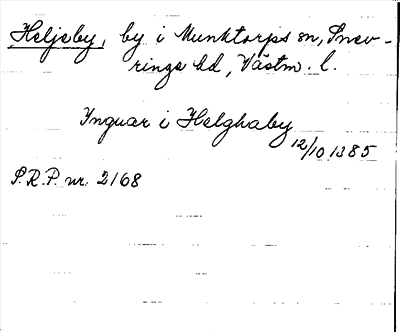 Heljeby, by i Munktorps sn, Snev-
rings hd, Västm. l.
Ynguar i Helghaby
12/10 1385
S.R.P. nr. 2168